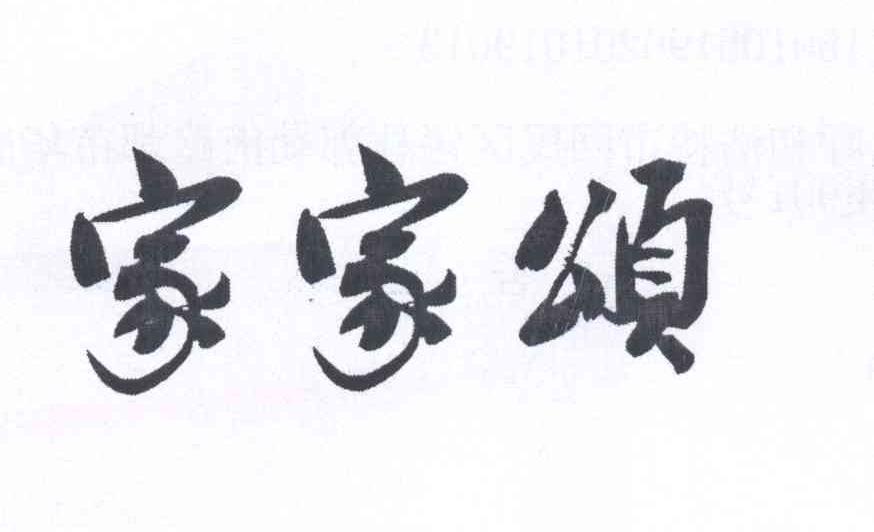 家家頌